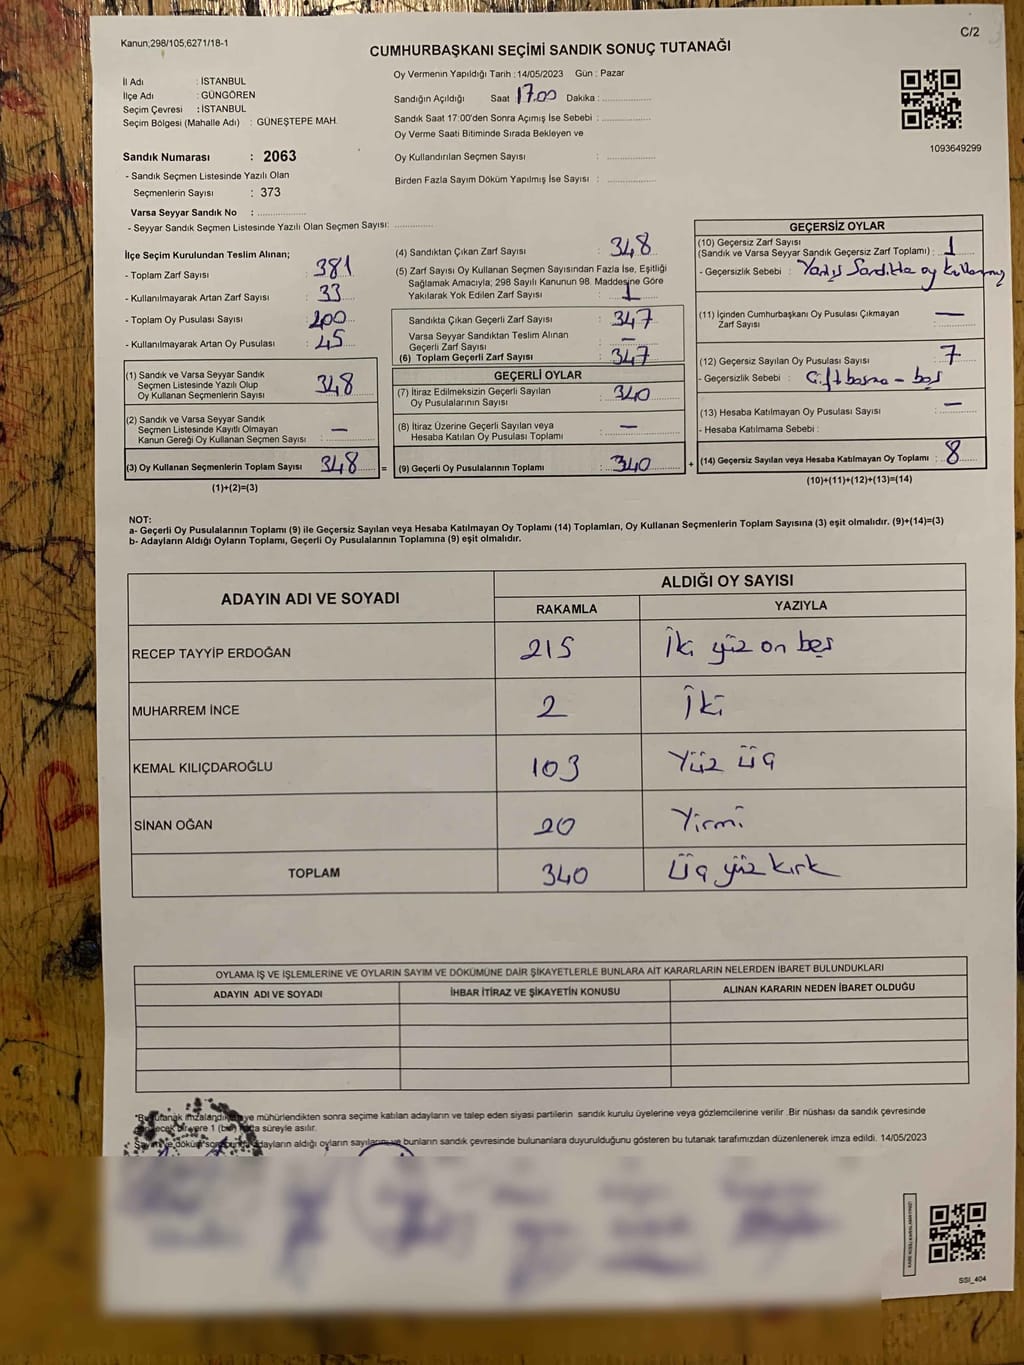 Kanun;298/105;6271/18-1
C/2
CUMHURBAŞKANI SEÇİMİ SANDIK SONUÇ TUTANAĞI
İl Adı : İSTANBUL
İlçe Adı : GÜNGÖREN
Seçim Çevresi : İSTANBUL
Seçim Bölgesi (Mahalle Adı) : GÜNEŞTEPE MAH.
Sandık Numarası : 2063
- Sandık Seçmen Listesinde Yazılı Olan
Seçmenlerin Sayısı : 373
Varsa Seyyar Sandık No : ................
- Seyyar Sandık Seçmen Listesinde Yazılı Olan Seçmen Sayısı: ..............
Oy Vermenin Yapıldığı Tarih : 14/05/2023 Gün : Pazar
Sandığın Açıldığı Saat 17.00 Dakika : ................
Sandık Saat 17:00'den Sonra Açımış İse Sebebi : ................
Oy Verme Saati Bitiminde Sırada Bekleyen ve
Oy Kullandırılan Seçmen Sayısı : ................
Birden Fazla Sayım Döküm Yapılmış İse Sayısı : ................
1093649299
İlçe Seçim Kurulundan Teslim Alınan;
- Toplam Zarf Sayısı : 381
- Kullanılmayarak Artan Zarf Sayısı : 33
- Toplam Oy Pusulası Sayısı :
- Kullanılmayarak Artan Oy Pusulası : 45
(1) Sandık ve Varsa Seyyar Sandık
Seçmen Listesinde Yazılı Olup
Oy Kullanan Seçmenlerin Sayısı : 348
(2) Sandık ve Varsa Seyyar Sandık
Seçmen Listesinde Kayıtlı Olmayan
Kanun Gereği Oy Kullanan Seçmen Sayısı : —
(3) Oy Kullanan Seçmenlerin Toplam Sayısı : 348 =
(1)+(2)=(3)
(4) Sandıktan Çıkan Zarf Sayısı : 348
(5) Zarf Sayısı Oy Kullanan Seçmen Sayısından Fazla İse, Eşitliği
Sağlamak Amacıyla; 298 Sayılı Kanunun 98. Maddesine Göre
Yakılarak Yok Edilen Zarf Sayısı : 1
Sandıkta Çıkan Geçerli Zarf Sayısı : 347
Varsa Seyyar Sandıktan Teslim Alınan
Geçerli Zarf Sayısı : —
(6) Toplam Geçerli Zarf Sayısı : 347
GEÇERLİ OYLAR
(7) İtiraz Edilmeksizin Geçerli Sayılan
Oy Pusulalarının Sayısı : 340
(8) İtiraz Üzerine Geçerli Sayılan veya
Hesaba Katılan Oy Pusulası Toplamı : —
(9) Geçerli Oy Pusulalarının Toplamı : 340 +
GEÇERSİZ OYLAR
(10) Geçersiz Zarf Sayısı
(Sandık ve Varsa Seyyar Sandık Geçersiz Zarf Toplamı) : 1
- Geçersizlik Sebebi : Yanlış Sandıkta oy
(11) İçinden Cumhurbaşkanı Oy Pusulası Çıkmayan
Zarf Sayısı : —
(12) Geçersiz Sayılan Oy Pusulası Sayısı : 7
- Geçersizlik Sebebi : Çift basma - boş
(13) Hesaba Katılmayan Oy Pusulası Sayısı : —
- Hesaba Katılmama Sebebi :
(14) Geçersiz Sayılan veya Hesaba Katılmayan Oy Toplamı : 8
(10)+(11)+(12)+(13)=(14)
NOT:
a- Geçerli Oy Pusulalarının Toplamı (9) ile Geçersiz Sayılan veya Hesaba Katılmayan Oy Toplamı (14) Toplamları, Oy Kullanan Seçmenlerin Toplam Sayısına (3) eşit olmalıdır. (9)+(14)=(3)
b- Adayların Aldığı Oyların Toplamı, Geçerli Oy Pusulalarının Toplamına (9) eşit olmalıdır.
ADAYIN ADI VE SOYADI
ALDIĞI OY SAYISI
RAKAMLA YAZIYLA
RECEP TAYYİP ERDOĞAN 215 İki yüz on beş
MUHARREM İNCE 2 İki
KEMAL KILIÇDAROĞLU 103 Yüz üç
SİNAN OĞAN 20 Yirmi
TOPLAM 340 Üç yüz kırk
OYLAMA İŞ VE İŞLEMLERİNE VE OYLARIN SAYIM VE DÖKÜMÜNE DAİR ŞİKAYETLERLE BUNLARA AİT KARARLARIN NELERDEN İBARET BULUNDUKLARI
ADAYIN ADI VE SOYADI İHBAR İTİRAZ VE ŞİKAYETİN KONUSU ALINAN KARARIN NEDEN İBARET OLDUĞU
mühürlendikten sonra seçime katılan adayların ve talep eden siyasi partilerin sandık kurulu üyelerine veya gözlemcilerine verilir .Bir nüshası da sandık çevresinde
süreyle asılır.
adayların aldığı oyların sayılarını ve bunların sandık çevresinde bulunanlara duyurulduğunu gösteren bu tutanak tarafımızdan düzenlenerek imza edildi. 14/05/2023
SSI_404